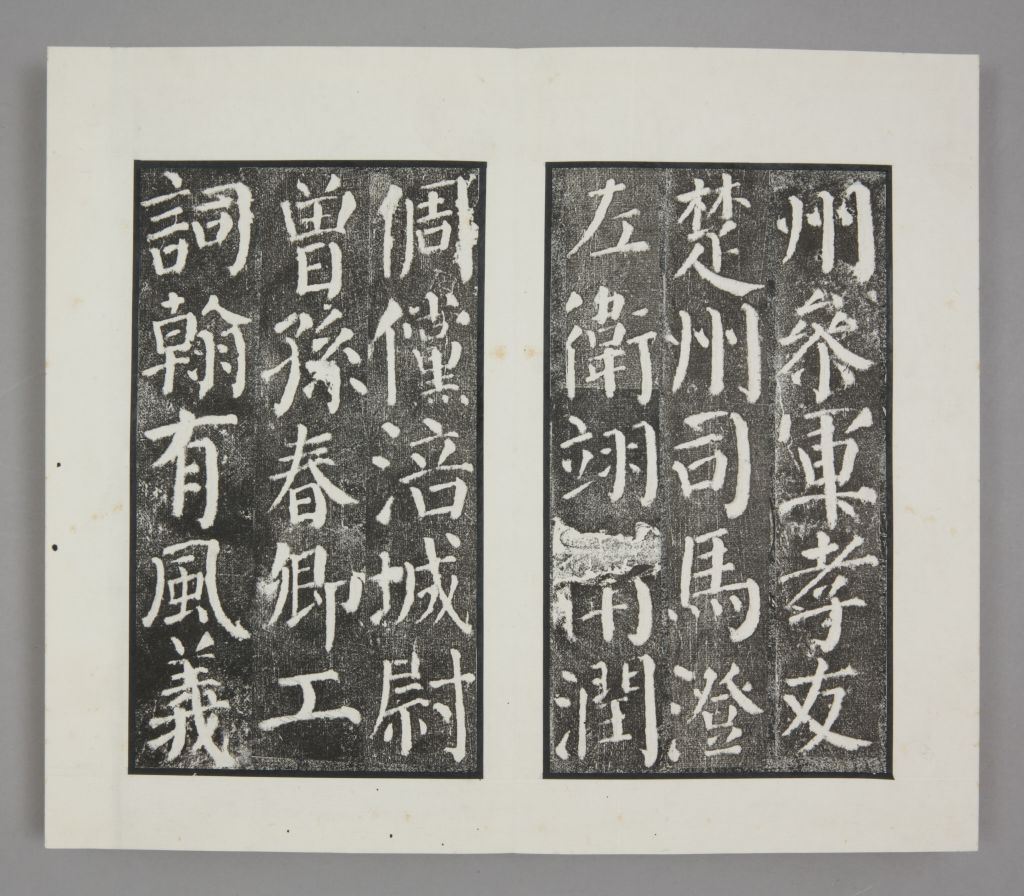 州參軍孝友
楚州司馬澄
左衛翊潤
倜儻涪城尉
曾孫春卿工
詞翰有風義